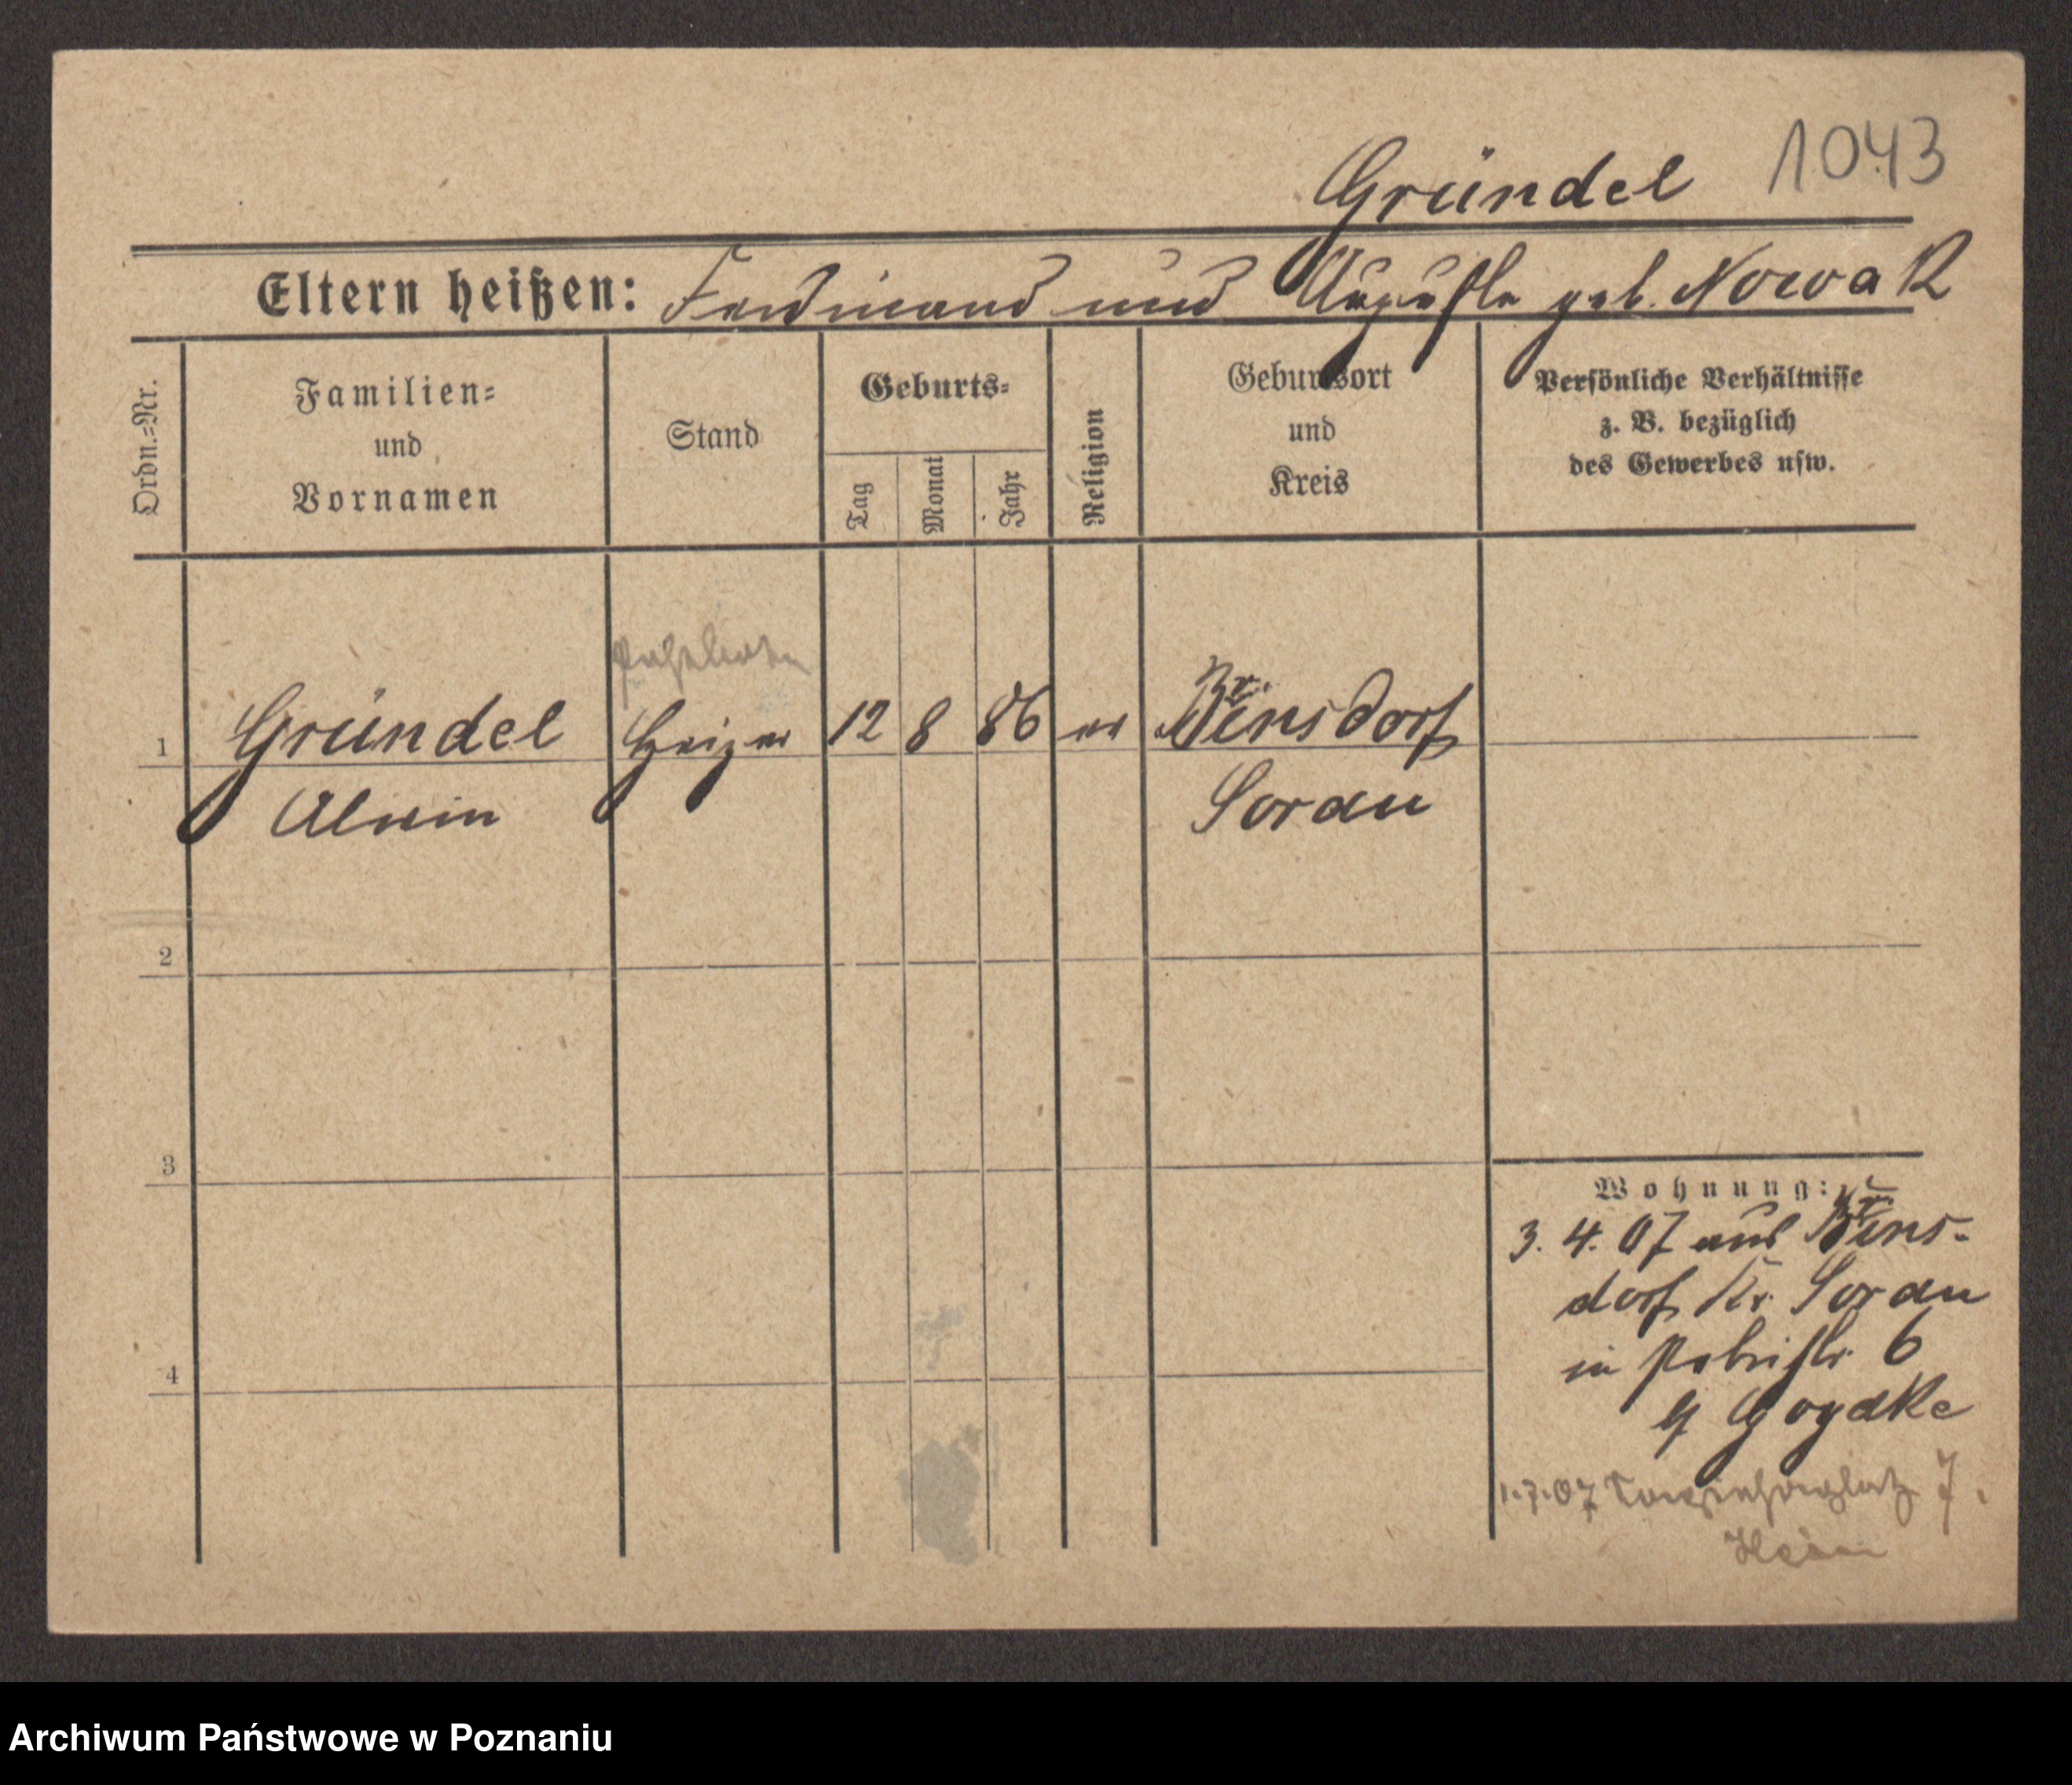 1043
Gründel
Eltern heißen: Ferdinand und Auguste geb. Nowak
Ordn.=Nr.
Familien=
und
Vornamen
Stand
Geburts=
Tag
Monat
Jahr
Religion
Geburtsort
und
Kreis
Persönliche Verhältnisse
z. B. bezüglich
des Gewerbes usw.
1 Gründel Heizer 12 8 86 ev
Alwin
Sorau
2
3
4
Wohnung:
3. 4. 07 aus
dorf Kr. Sorau
in 6
1.7.07 7.
Archiwum Państwowe w Poznaniu